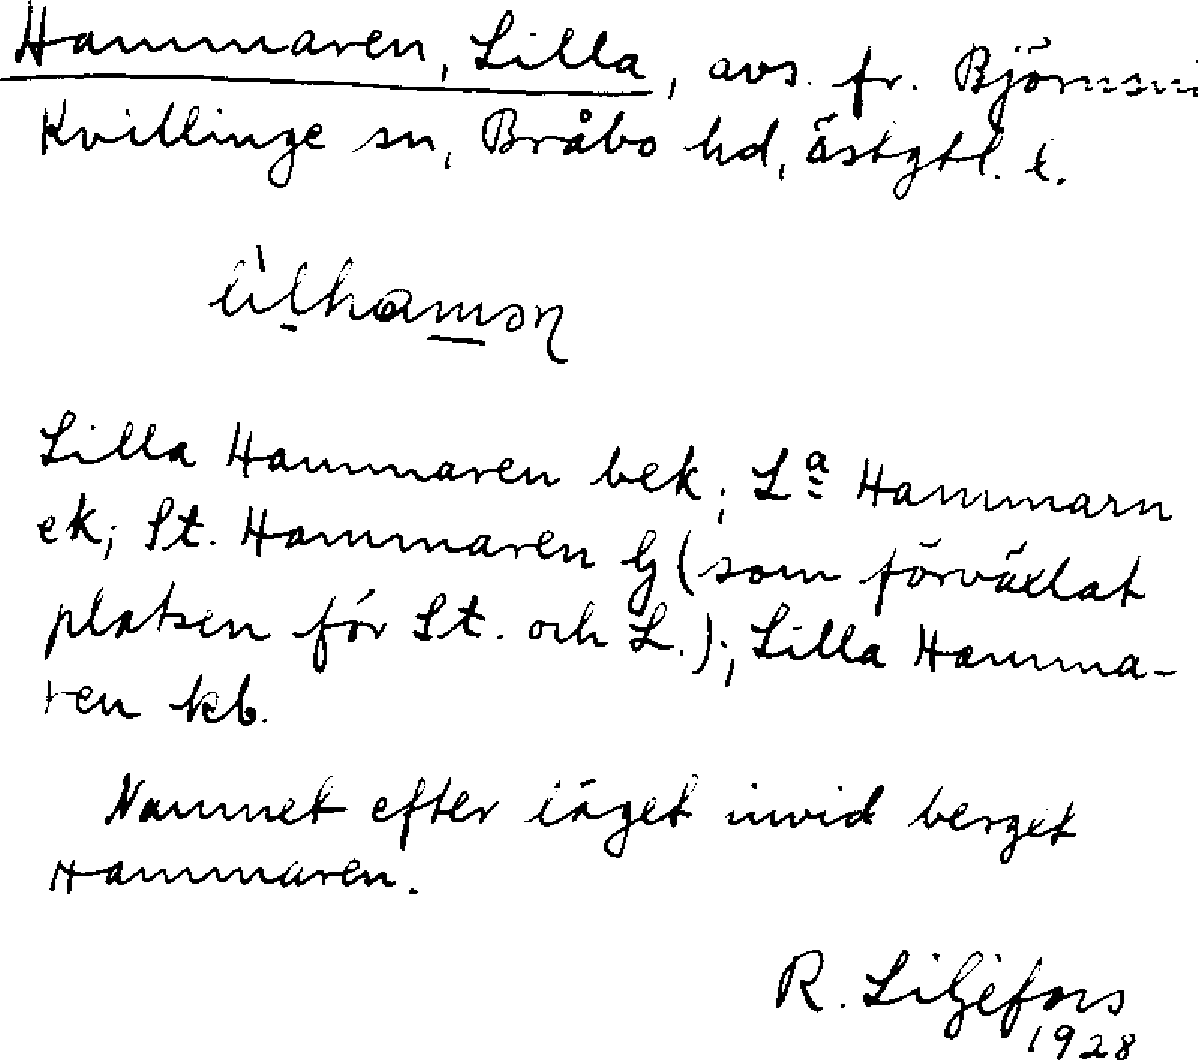 Hammaren, Lilla, avs. fr. Björnsni
Kvillinge sn, Bråbo hd, Östgtl. l.
Lilla Hammaren bek; Lª Hammarn
ek; St. Hammaren Gj (som förväxlat
platsen för St. och L.); Lilla Hamma-
ren kb.
Namnet efter läget invid berget
Hammaren.
R. Liljefors
1928